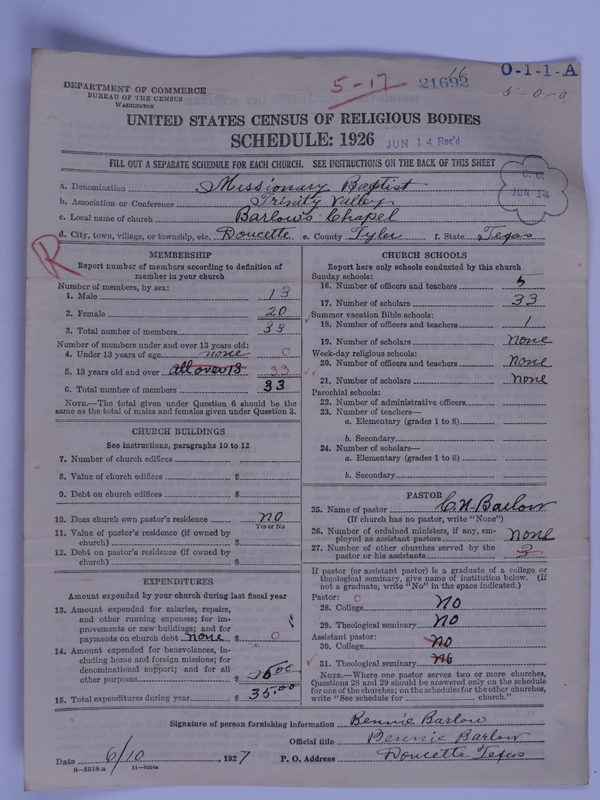 DEPARTMENT OF COMMERCE
BUREAU OF THE CENSUS
WASHINGTON
5-17
16
21692
O-1-1-A
5-0-0
UNITED STATES CENSUS OF RELIGIOUS BODIES
SCHEDULE: 1926
JUN 14 Rec'd
FILL OUT A SEPARATE SCHEDULE FOR EACH CHURCH. SEE INSTRUCTIONS ON THE BACK OF THIS SHEET
JUN 14
a. Denomination Missionary Baptist
b. Association or Conference Trinity Valley
c. Local name of church Barlow's Chapel
d. City, town, village, or township, etc. Doucette e. County Tyler f. State Texas
R
MEMBERSHIP
Report number of members according to definition of
member in your church
Number of members, by sex:
1. Male 13
2. Female 20
3. Total number of members 33
Number of members under and over 13 years old:
4. Under 13 years of age none 0
5. 13 years old and over all over 13 33
6. Total number of members 33
NOTE.—The total given under Question 6 should be the
same as the total of males and females given under Question 3.
CHURCH BUILDINGS
See instructions, paragraphs 10 to 12
7. Number of church edifices
8. Value of church edifices $
9. Debt on church edifices $
10. Does church own pastor's residence no
Yes or No
11. Value of pastor's residence (if owned by
church) $
12. Debt on pastor's residence (if owned by
church) $
EXPENDITURES
Amount expended by your church during last fiscal year
13. Amount expended for salaries, repairs,
and other running expenses; for im-
provements or new buildings; and for
payments on church debt none $ 0
14. Amount expended for benevolences, in-
cluding home and foreign missions; for
denominational support; and for all
other purposes $
15. Total expenditures during year $ 35.00
CHURCH SCHOOLS
Report here only schools conducted by this church
Sunday schools:
16. Number of officers and teachers 5
17. Number of scholars 33
Summer vacation Bible schools:
18. Number of officers and teachers 1
19. Number of scholars none
Week-day religious schools:
20. Number of officers and teachers none
21. Number of scholars none
Parochial schools:
22. Number of administrative officers
23. Number of teachers—
a. Elementary (grades 1 to 8)
b. Secondary
24. Number of scholars—
a. Elementary (grades 1 to 8)
b. Secondary
PASTOR
25. Name of pastor C.N. Barlow
(If church has no pastor, write "None")
26. Number of ordained ministers, if any, em-
ployed as assistant pastors none
27. Number of other churches served by the
pastor or his assistants 3
If pastor (or assistant pastor) is a graduate of a college or
theological seminary, give name of institution below. (If
not a graduate, write "No" in the space indicated.)
Pastor: 0
28. College No
29. Theological seminary No
Assistant pastor:
30. College No
31. Theological seminary No
NOTE.—Where one pastor serves two or more churches,
Questions 28 and 29 should be answered only on the schedule
for one of the churches; on the schedules for the other churches,
write "See schedule for church."
Signature of person furnishing information Bennie Barlow
Official title Bennie Barlow
Date 6/10, 1927 P. O. Address Doucette Texas